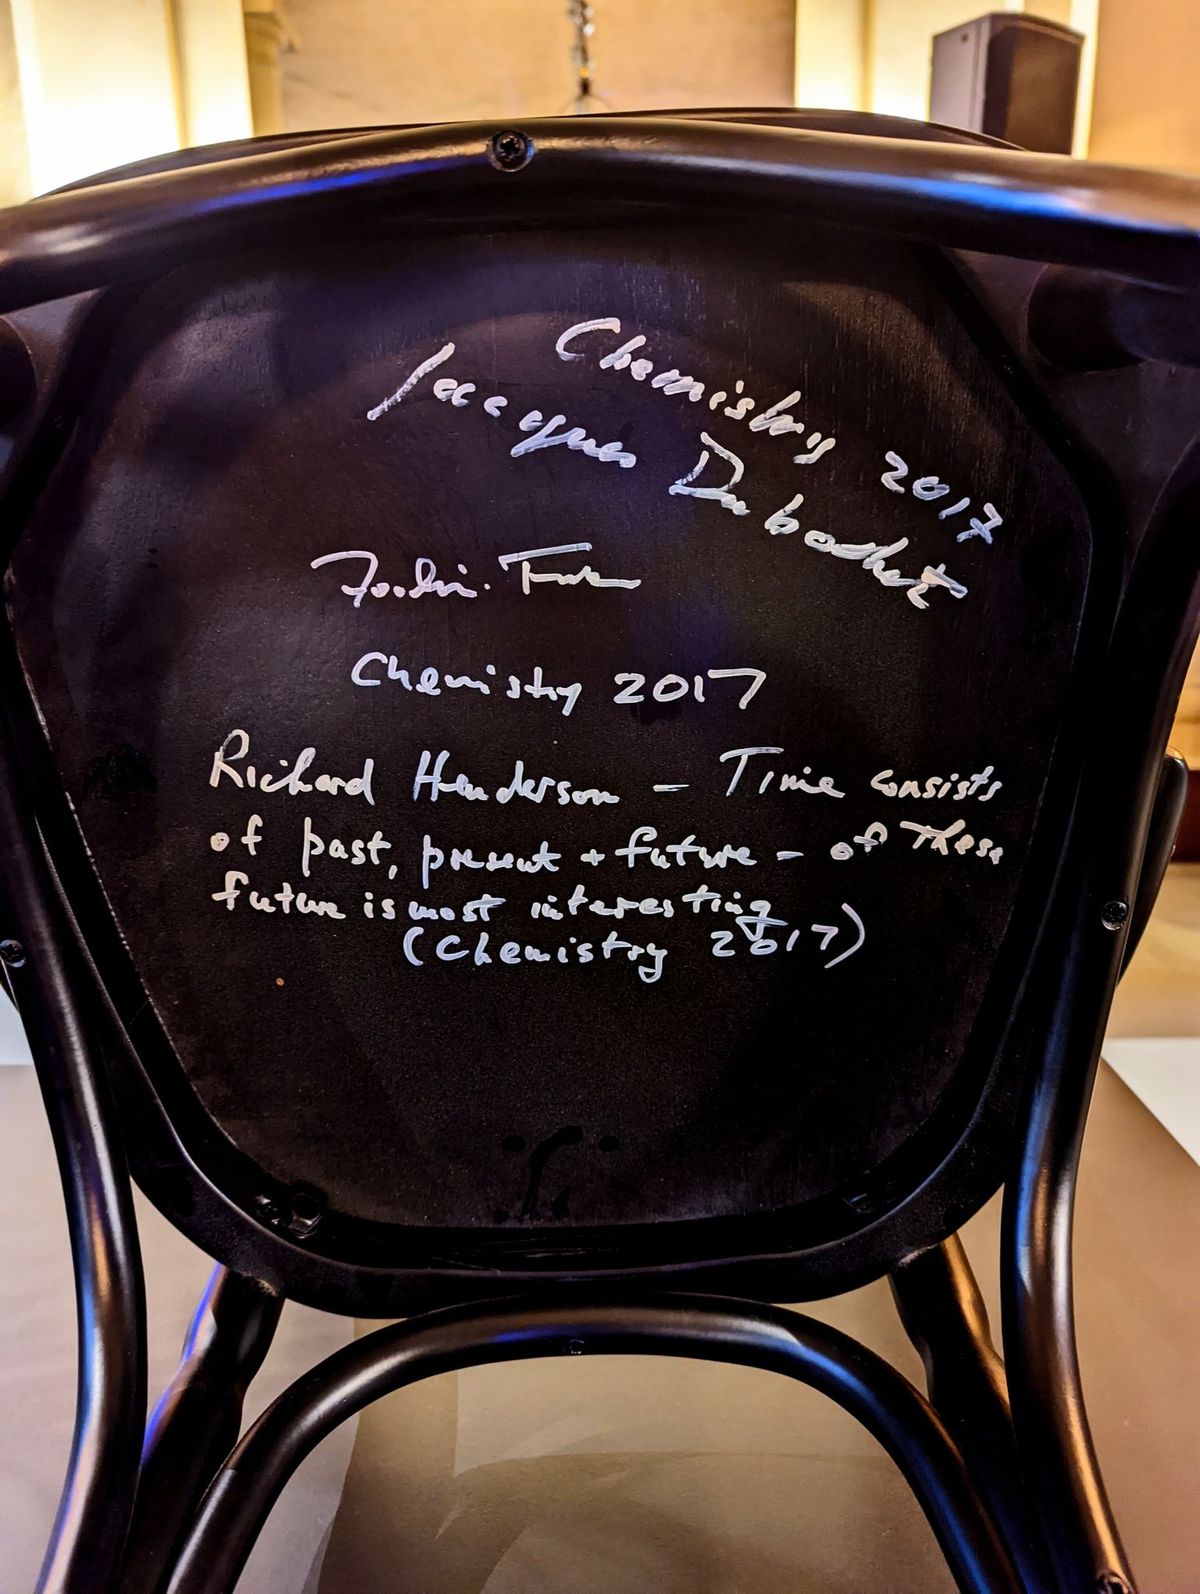 Chemistry 2017
Jacques Dubochet
Joachim Frank
Chemistry 2017
Richard Henderson – Time consists
of past, present + future – of these
future is most interesting
(Chemistry 2017)